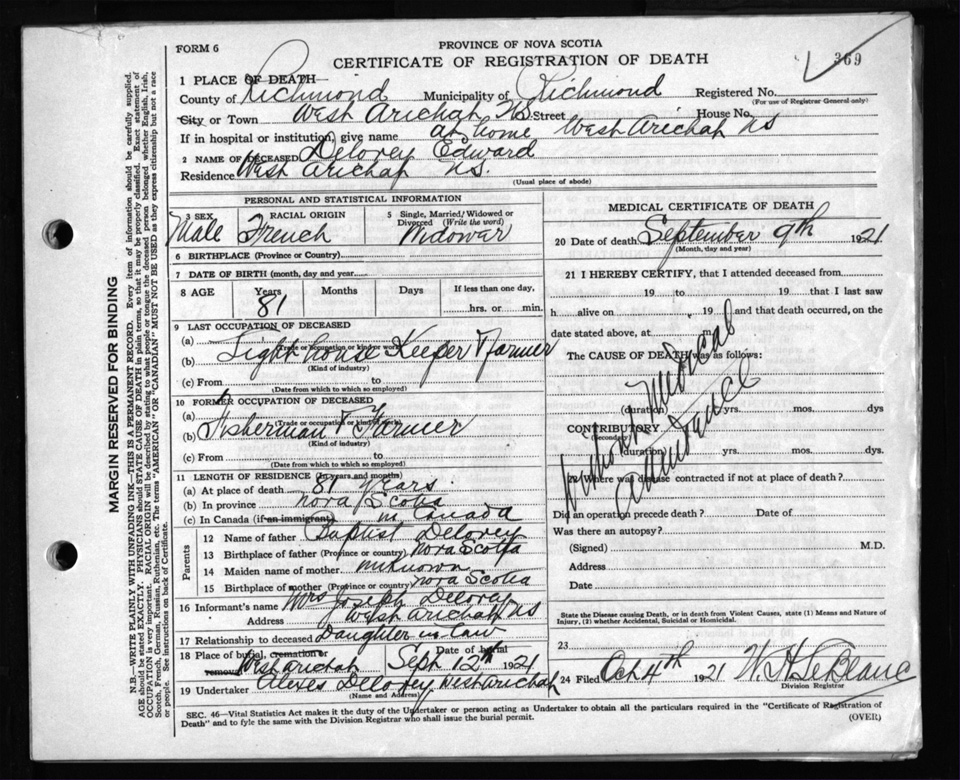 FORM 6
PROVINCE OF NOVA SCOTIA
CERTIFICATE OF REGISTRATION OF DEATH
369
1 PLACE OF DEATH
County of Richmond Municipality of Richmond Registered No.
(For use of Registrar General only)
City or Town West Arichat NS Street House No.
If in hospital or institution, give name at home West Arichat NS
2 NAME OF DECEASED Delorey Edward
Residence West Arichat NS.
(Usual place of abode)
PERSONAL AND STATISTICAL INFORMATION
3 SEX RACIAL ORIGIN 5 Single, Married, Widowed or Divorced (Write the word)
Male French Widower
6 BIRTHPLACE (Province or Country)
7 DATE OF BIRTH (month, day and year)
8 AGE Years Months Days If less than one day,
81 hrs. or min.
9 LAST OCCUPATION OF DECEASED
(a) (Trade or occupation or kind of work)
(b) Light house Keeper & farmer
(Kind of industry)
(c) From to
(Date from which to which so employed)
10 FORMER OCCUPATION OF DECEASED
(Trade or occupation or kind of work)
(b) Fisherman & Farmer
(Kind of industry)
(c) From to
(Date from which to which so employed)
11 LENGTH OF RESIDENCE (in years and months)
(a) At place of death 81 Years
(b) In province Nova Scotia
(c) In Canada (if an immigrant) in Canada
Parents
12 Name of father Baptist Delorey
13 Birthplace of father (Province or country) Nova Scotia
14 Maiden name of mother unknown
15 Birthplace of mother (Province or country) Nova Scotia
16 Informant's name Mrs Joseph Delorey
Address West Arichat NS
17 Relationship to deceased Daughter in Law
18 Place of burial, cremation or removal Date of burial
West Arichat Sept 12th 1921
19 Undertaker Alexes Delorey West Arichat
(Name and Address)
MEDICAL CERTIFICATE OF DEATH
20 Date of death September 9th 1921
(Month, day and year)
21 I HEREBY CERTIFY, that I attended deceased from
19 to 19 that I last saw
h alive on 19 and that death occurred, on the
date stated above, at m
The CAUSE OF DEATH was as follows:
Without Medical
Attendance
(duration) yrs. mos. dys
CONTRIBUTORY
(Secondary)
(duration) yrs. mos. dys
22 Where was disease contracted if not at place of death?
Did an operation precede death? Date of
Was there an autopsy?
(Signed) M.D.
Address
Date
State the Disease causing Death, or in death from Violent Causes, state (1) Means and Nature of
Injury, (2) whether Accidental, Suicidal or Homicidal.
23
24 Filed Oct 4th 1921 W. H LeBlanc
Division Registrar
SEC. 46—Vital Statistics Act makes it the duty of the Undertaker or person acting as Undertaker to obtain all the particulars required in the "Certificate of Registration of
Death" and to fyle the same with the Division Registrar who shall issue the burial permit.
(OVER)
MARGIN RESERVED FOR BINDING
N.B.—WRITE PLAINLY WITH UNFADING INK—THIS IS A PERMANENT RECORD. Every item of information should be carefully supplied.
AGE should be stated EXACTLY. PHYSICIANS should STATE CAUSE OF DEATH in plain terms, so that it may be properly classified. Exact statement of
OCCUPATION is very important. RACIAL ORIGIN will be described by stating to what people or tongue the deceased person belonged whether English, Irish,
Scotch, French, German, Russian, Ruthenian, etc. The terms "AMERICAN" OR "CANADIAN" MUST NOT BE USED as they express citizenship but not a race
or people. See instructions on back of Certificate.